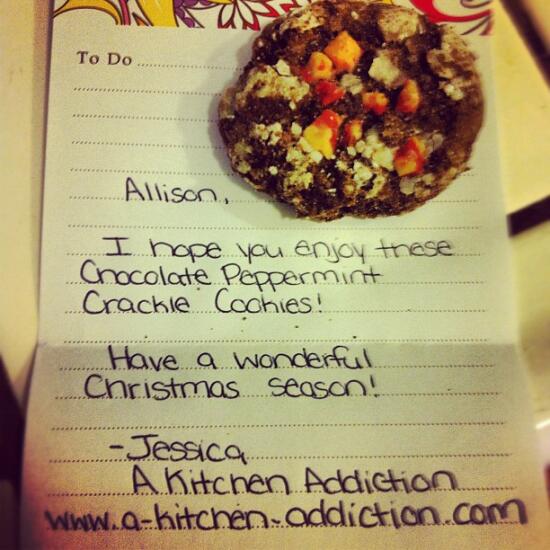 To Do
Allison,
I hope you enjoy these
Chocolate Peppermint
Crackle Cookies!
Have a wonderful
Christmas season!
-Jessica
A Kitchen Addiction
www.a-kitchen-addiction.com